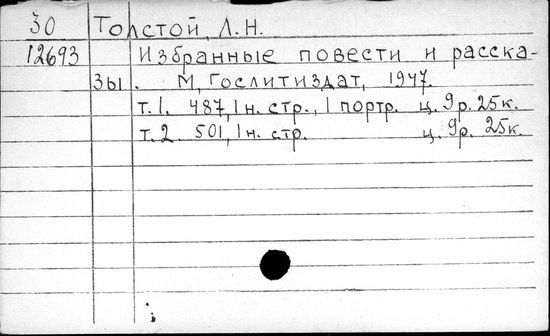 30 Толстой, Л.Н.
12693 Избранные повести и расска-
зы. М, Гослитиздат, 1947.
т.1. 487, 1 н. стр., 1 портр. ц. 9р. 25к.
т.2 501, 1 н. стр. ц. 9р. 25к.